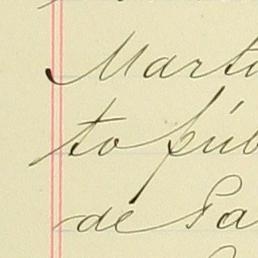 Marti
to públ
de Pa